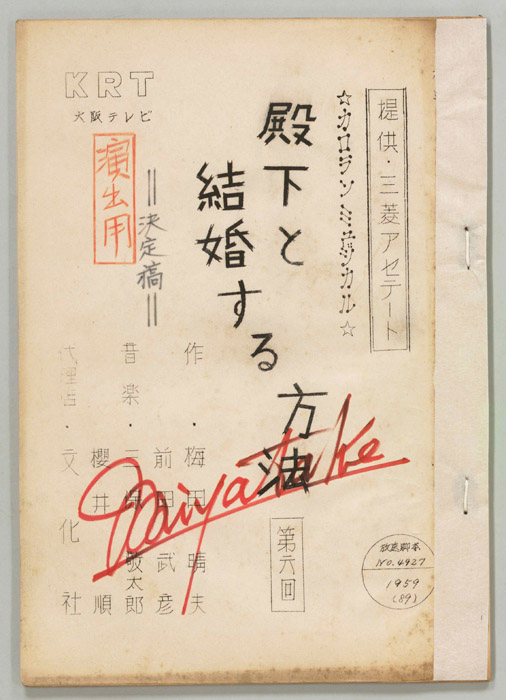 提供・三菱アセテート
☆カロラン ミュヂカル☆
殿下と
結婚する
方法
第六回
KRT
大阪テレビ
演出用
=決定稿=
作・梅田晴夫
前田武彦
音楽・三保敬太郎
櫻井順
代理店・文化社
放送脚本
NO.4927
1959
(89)